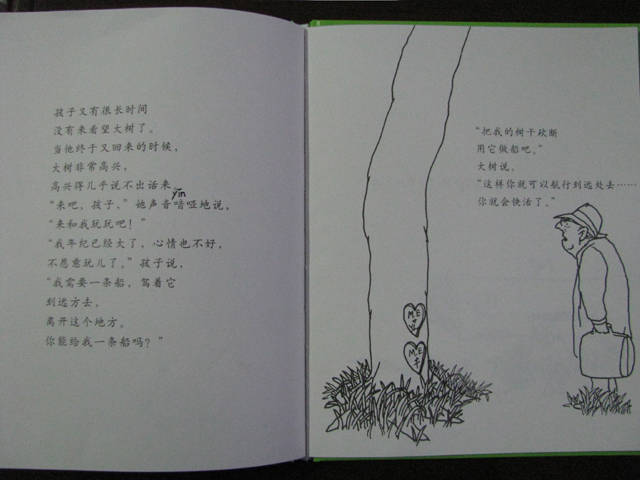 孩子又有很长时间
没有来看望大树了。
当他终于又回来的时候，
大树非常高兴，
高兴得几乎说不出话来。
yīn
“来吧，孩子，”她声音喑哑地说，
“来和我玩玩吧！”
“我年纪已经大了，心情也不好，
不愿意玩儿了。”孩子说，
“我需要一条船，驾着它
到远方去，
离开这个地方。
你能给我一条船吗？”
“把我的树干砍断
用它做船吧。”
大树说，
“这样你就可以航行到远处去……
你就会快活了。”
M.E.
+
M.E.
+